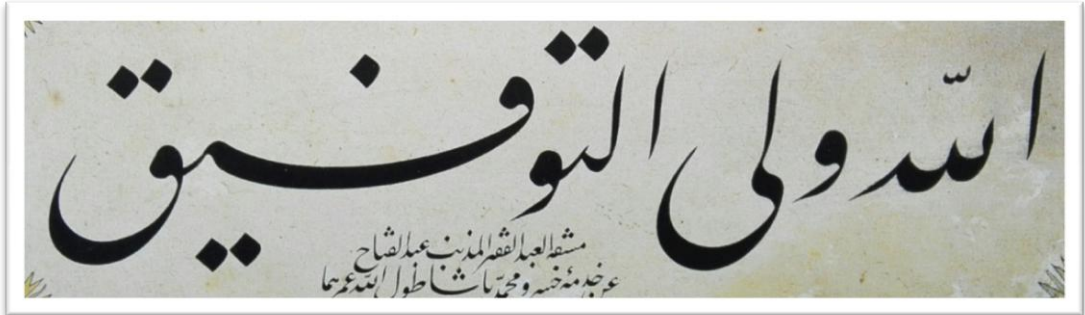 الله ولى التوفيق
مشقه العبد الفقير المذنب عبد الفتاح
عن خدمۀ خسرو محمد پاشا طول الله عمرهما